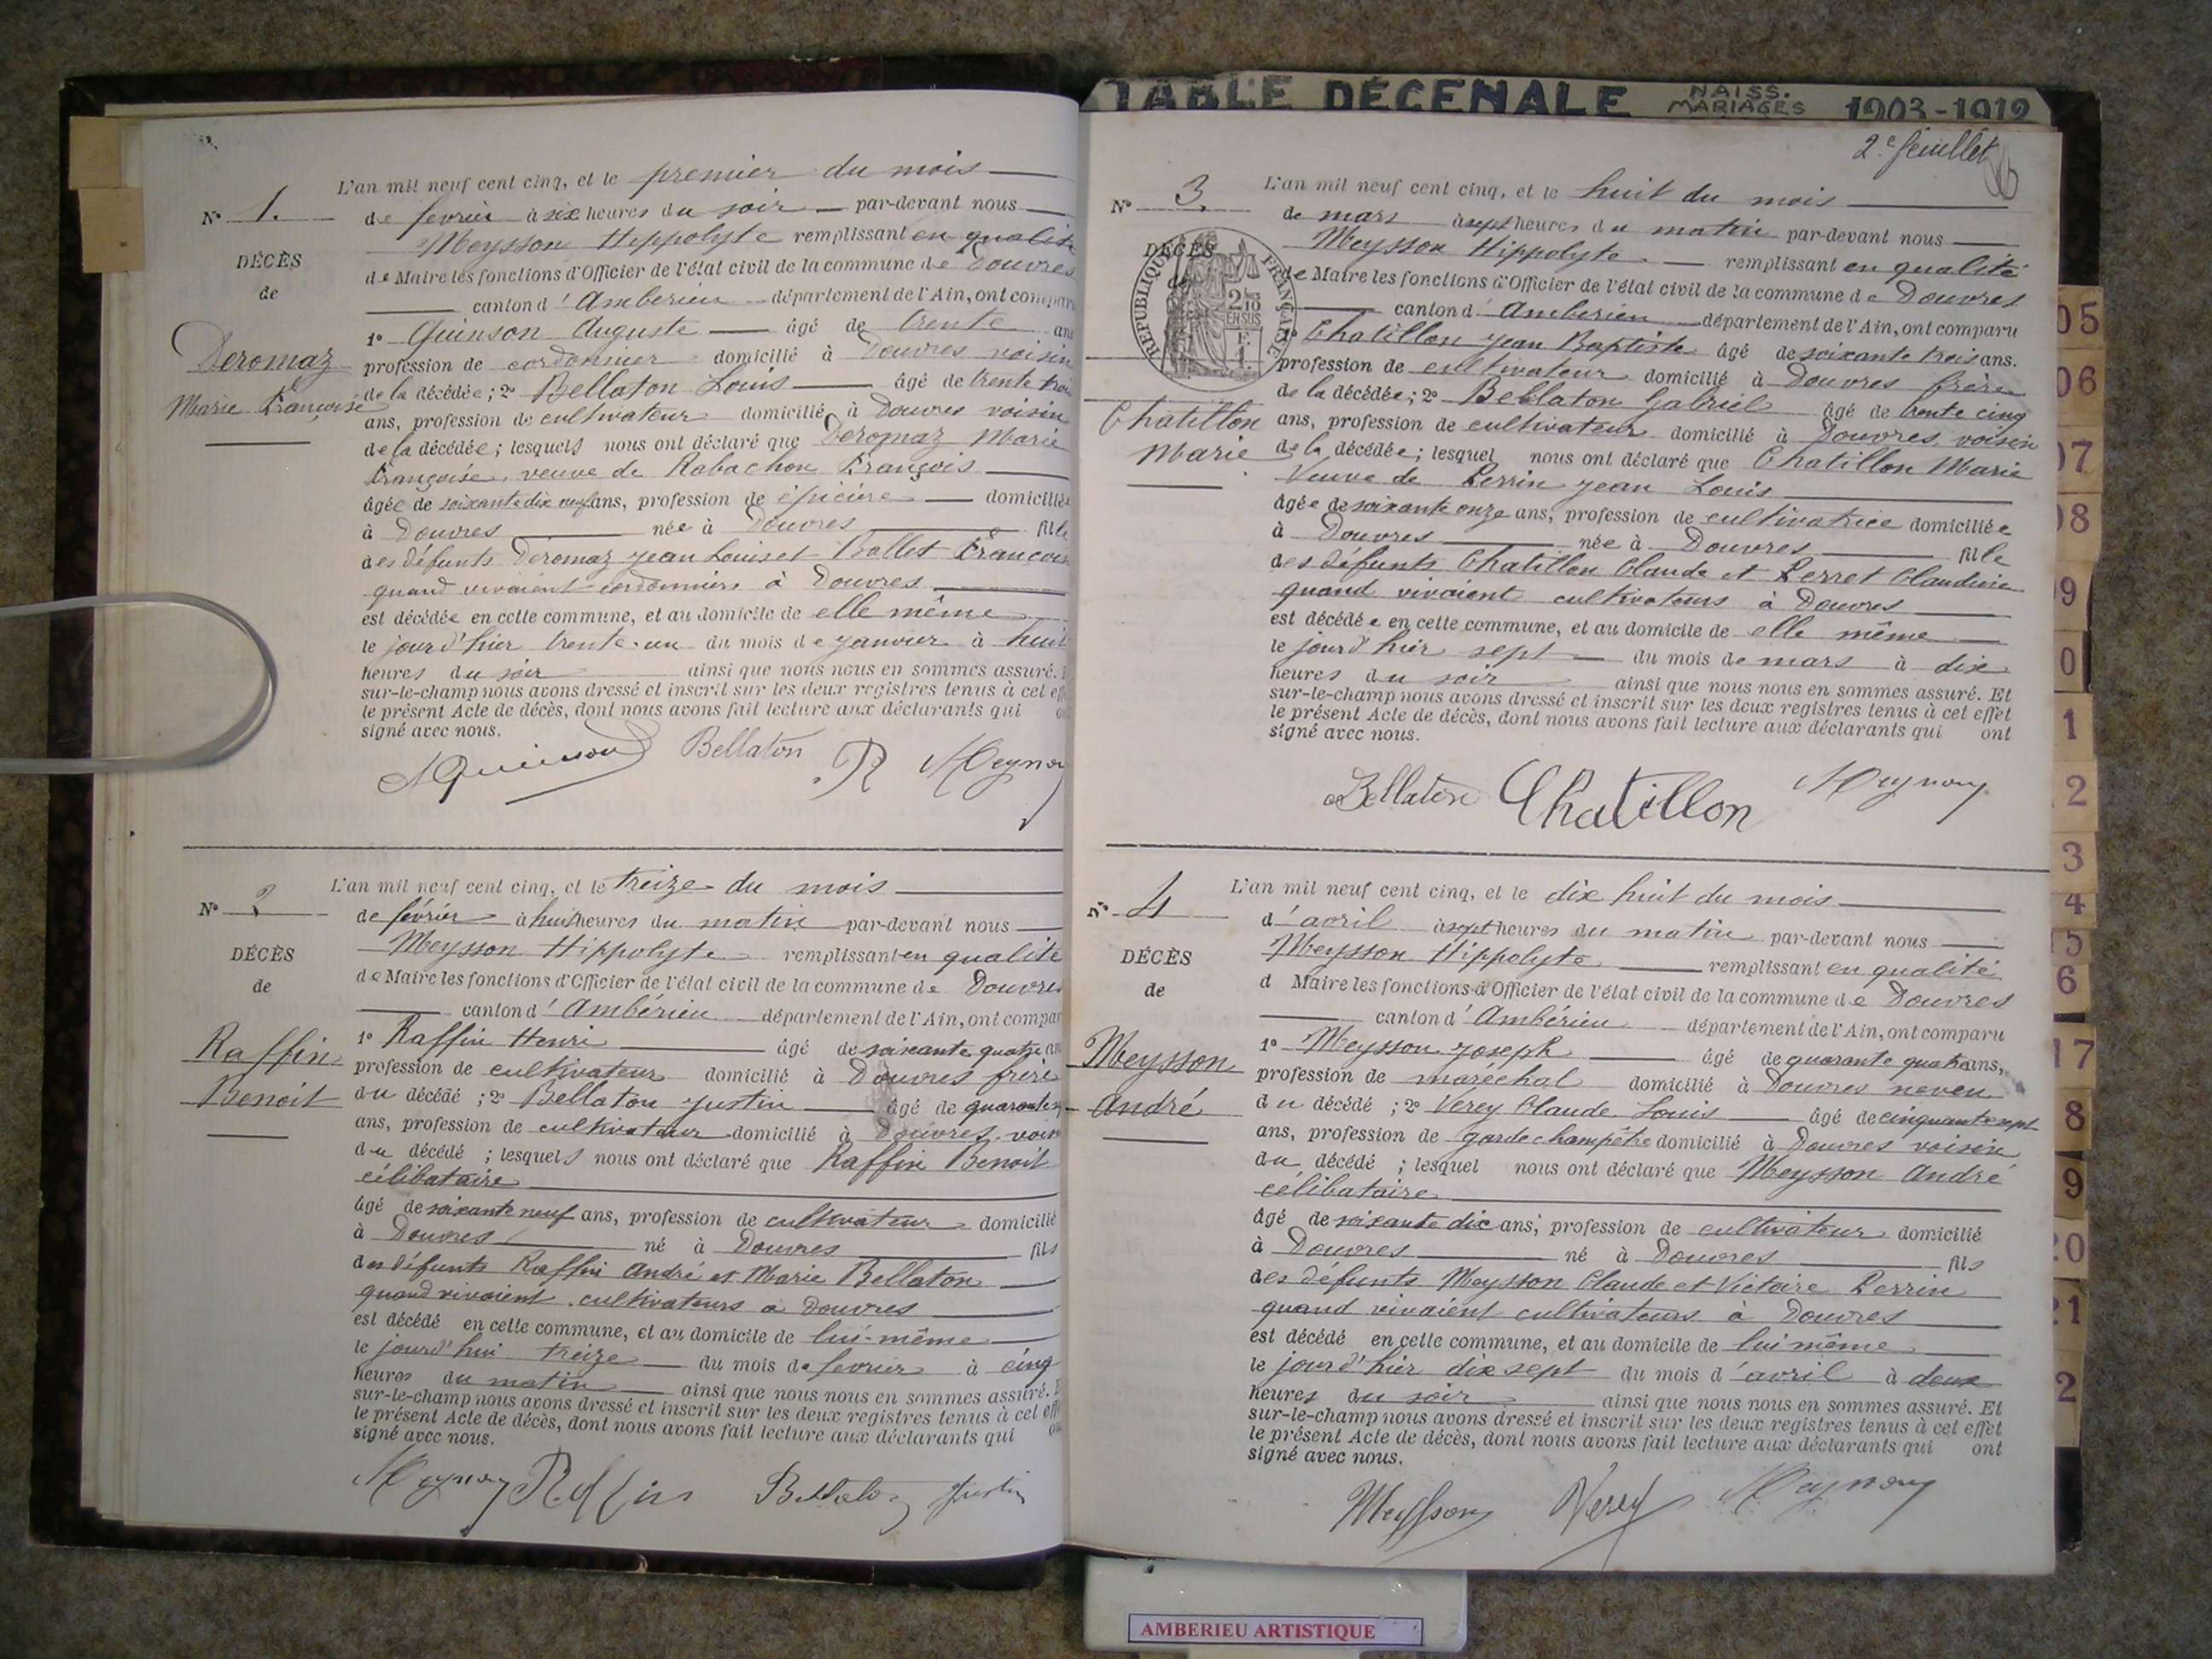 N° 1.
DÉCÈS
de
Deromaz
Marie Françoise
L'an mil neuf cent cinq, et le premier du mois
de fevrier à six heures du soir par-devant nous
Meysson Hippolyte remplissant en qualité
de Maire les fonctions d'Officier de l'état civil de la commune de Douvres
canton d'Ambérieu département de l'Ain, ont compar
1° Quinson Auguste âgé de trente ans
profession de cordonnier domicilié à Douvres voisin
de la décédée; 2° Bellaton Louis âgé de trente trois
ans, profession de cultivateur domicilié à Douvres voisin
de la décédée; lesquels nous ont déclaré que Deromaz Marie
Françoise, veuve de Rabachon François
âgée de soixante dix neuf ans, profession de épicière domiciliée
à Douvres née à Douvres fille
des défunts Deromaz Jean Louis et Trollet Francois
quand vivaient cordonniers à Douvres
est décédée en cette commune, et au domicile de elle même
le jour d'hier trente-un du mois de janvier à huit
heures du soir ainsi que nous nous en sommes assuré.
sur-le-champ nous avons dressé et inscrit sur les deux registres tenus à cet eff
le présent Acte de décès, dont nous avons fait lecture aux déclarants qui
signé avec nous.
AQuinson Bellaton
N° 2
DÉCÈS
de
Raffin
Benoit
L'an mil neuf cent cinq, et le treize du mois
de février à huit heures du matin par-devant nous
Meysson Hippolyte remplissant en qualité
de Maire les fonctions d'Officier de l'état civil de la commune de Douvres
canton d'Ambérieu département de l'Ain, ont compar
1° Raffin Henri âgé de soixante quatre an
profession de cultivateur domicilié à Douvres frère
du décédé; 2° Bellaton Justin âgé de quarante
ans, profession de cultivateur domicilié à Douvres, voisin
du décédé; lesquels nous ont déclaré que Raffin Benoit
célibataire
âgé de soixante neuf ans, profession de cultivateur domicilié
à Douvres né à Douvres fils
des défunts Raffin André et Marie Bellaton
quand vivaient cultivateurs à Douvres
est décédé en cette commune, et au domicile de lui-même
le jourd'hui treize du mois de fevrier à cinq
heures du matin ainsi que nous nous en sommes assuré.
sur-le-champ nous avons dressé et inscrit sur les deux registres tenus à cet eff
le présent Acte de décès, dont nous avons fait lecture aux déclarants qui
signé avec nous.
Raffin Bellaton Justin
TABLE DÉCENALE NAISS. MARIAGES 1903-1912
2e feuillet
N° 3.
DÉCÈS
de
RÉPUBLIQUE FRANÇAISE
Chatillon
Marie
L'an mil neuf cent cinq, et le huit du mois
de mars à sept heures du matin par-devant nous
Meysson Hippolyte remplissant en qualité
de Maire les fonctions d'Officier de l'état civil de la commune de Douvres
canton d'Amberieu département de l'Ain, ont comparu
1° Chatillon Jean Baptiste âgé de soixante trois ans.
profession de cultivateur domicilié à Douvres frère
de la décédée; 2° Bellaton Gabriel âgé de trente cinq
ans, profession de cultivateur domicilié à Douvres voisin
de la décédée; lesquel nous ont déclaré que Chatillon Marie
Veuve de Perrin Jean Louis
âgée de soixante onze ans, profession de cultivatrice domiciliée
à Douvres née à Douvres fille
des défunts Chatillon Claude et Perret Claudine
quand vivaient cultivateurs à Douvres
est décédée en cette commune, et au domicile de elle même
le jour d'hier sept du mois de mars à dix
heures du soir ainsi que nous nous en sommes assuré. Et
sur-le-champ nous avons dressé et inscrit sur les deux registres tenus à cet effet
le présent Acte de décès, dont nous avons fait lecture aux déclarants qui ont
signé avec nous.
Bellaton Chatillon
N° 4
DÉCÈS
de
Meysson
André
L'an mil neuf cent cinq, et le dix huit du mois
d'avril à sept heures du matin par-devant nous
Meysson Hippolyte remplissant en qualité
d Maire les fonctions d'Officier de l'état civil de la commune de Douvres
canton d'Ambérieu département de l'Ain, ont comparu
1° Meysson Joseph âgé de quarante quatre ans,
profession de maréchal domicilié à Douvres neveu
du décédé; 2° Verey Claude Louis âgé de cinquante sept
ans, profession de garde champêtre domicilié à Douvres voisin
du décédé; lesquel nous ont déclaré que Meysson André
célibataire
âgé de soixante dix ans, profession de cultivateur domicilié
à Douvres né à Douvres fils
des défunts Meysson Claude et Victoire Perrin
quand vivaient cultivateurs à Douvres
est décédé en cette commune, et au domicile de lui même
le jour d'hier dix sept du mois d'avril à deux
heures du soir ainsi que nous nous en sommes assuré. Et
sur-le-champ nous avons dressé et inscrit sur les deux registres tenus à cet effet
le présent Acte de décès, dont nous avons fait lecture aux déclarants qui ont
signé avec nous.
Meysson Verey
05
06
07
08
9
0
1
2
3
4
5
6
17
8
9
20
21
2
AMBERIEU ARTISTIQUE